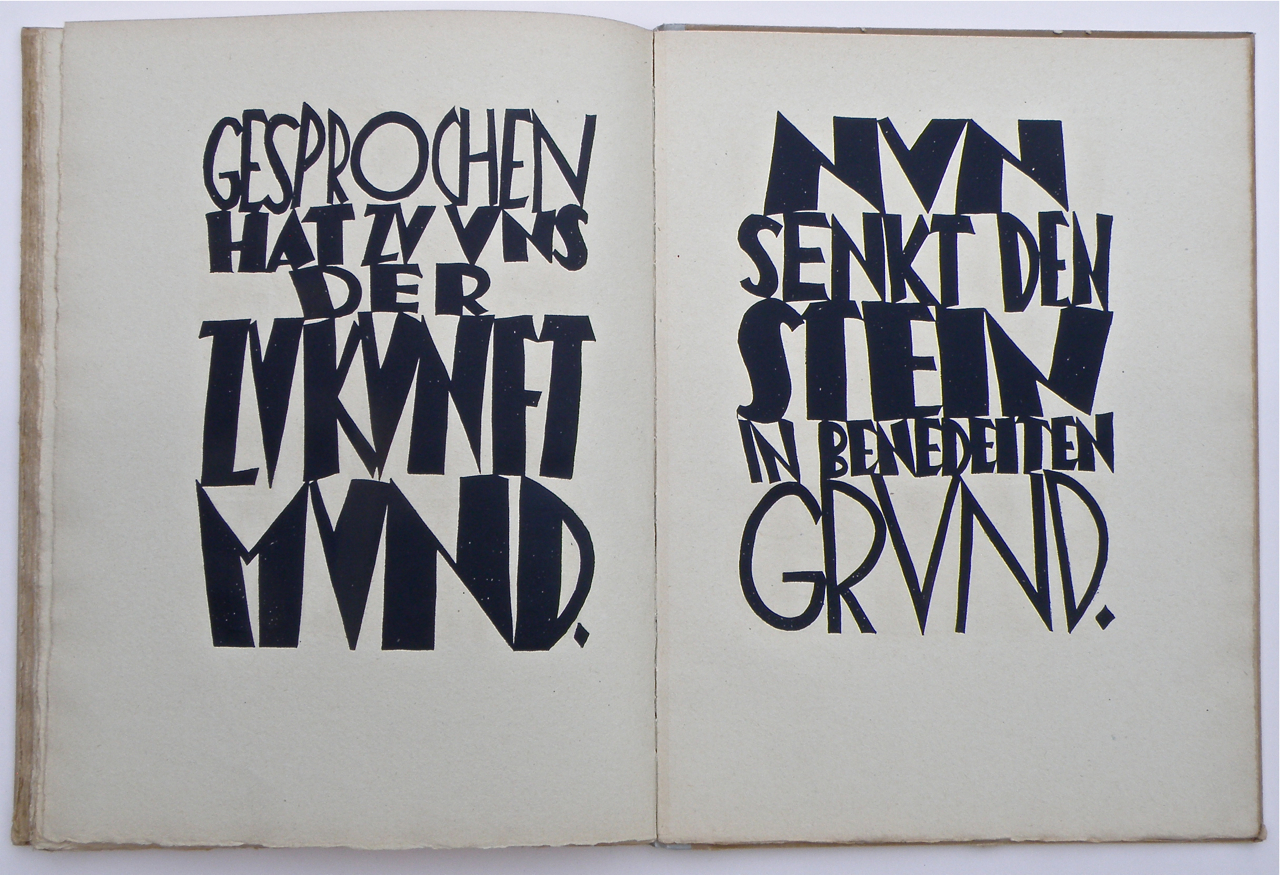 GESPROCHEN
HAT ZV VNS
DER
ZVKVNFT
MVND.
NVN
SENKT DEN
STEIN
IN BENEDEITEN
GRVND.